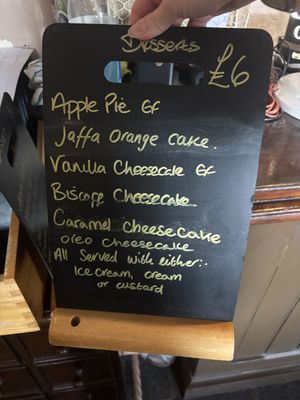 Desserts
£6
Apple Pie GF
Jaffa Orange cake.
Vanilla Cheesecake GF
Biscoff Cheesecake
Caramel cheesecake
oreo cheesecake
All Served with either:-
Ice cream, cream
or custard